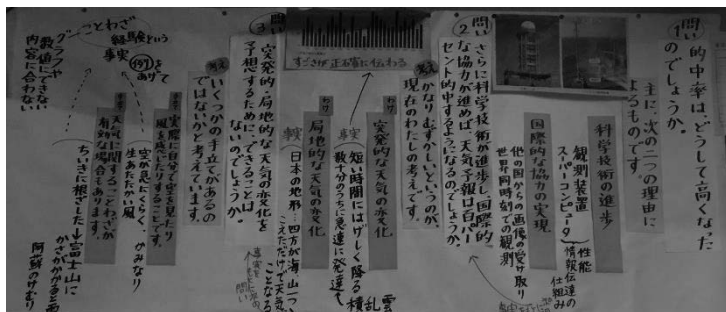 問い
①
的中率はどうして高くなった
のでしょうか。
主に、次の二つの理由に
よるものです。
科学技術の進歩
観測装置
スーパーコンピュータ
性能
情報伝達の
仕組み
国際的な協力の実現
他の国からの画像の受け取り
世界同時刻での観測
問い
②
さらに科学技術が進歩し、国際的
な協力が進めば、天気予報は百パー
セント的中するようになるのでしょうか。
かなりむずかしいというのが、
現在のわたしの考えです。
すごさが正確に伝わる
突発的な天気の変化
事実
短い時間にはげしく降る
数十分のうちに急速に発達
積乱雲
局地的な天気の変化
事実
日本の地形…四方が海、山一つ
こえただけで天気
ことなる
問い
③
突発的・局地的な天気の変化を
予想するために、できることは
ないのでしょうか。
いくつかの手立てがあるの
ではないかと考えています。
実際に自分で空を見たり
風を感じたりすることです。
空が急にくらく、かみなり
生あたたかい風
天気に関することわざが
有効な場合もあります。
ちいきに根ざした
富士山に
かさがかかると雨
阿蘇のけむり
ことわざ
経験という
事実
例
をあげて
グラフや
数値にできない
内容に合わない